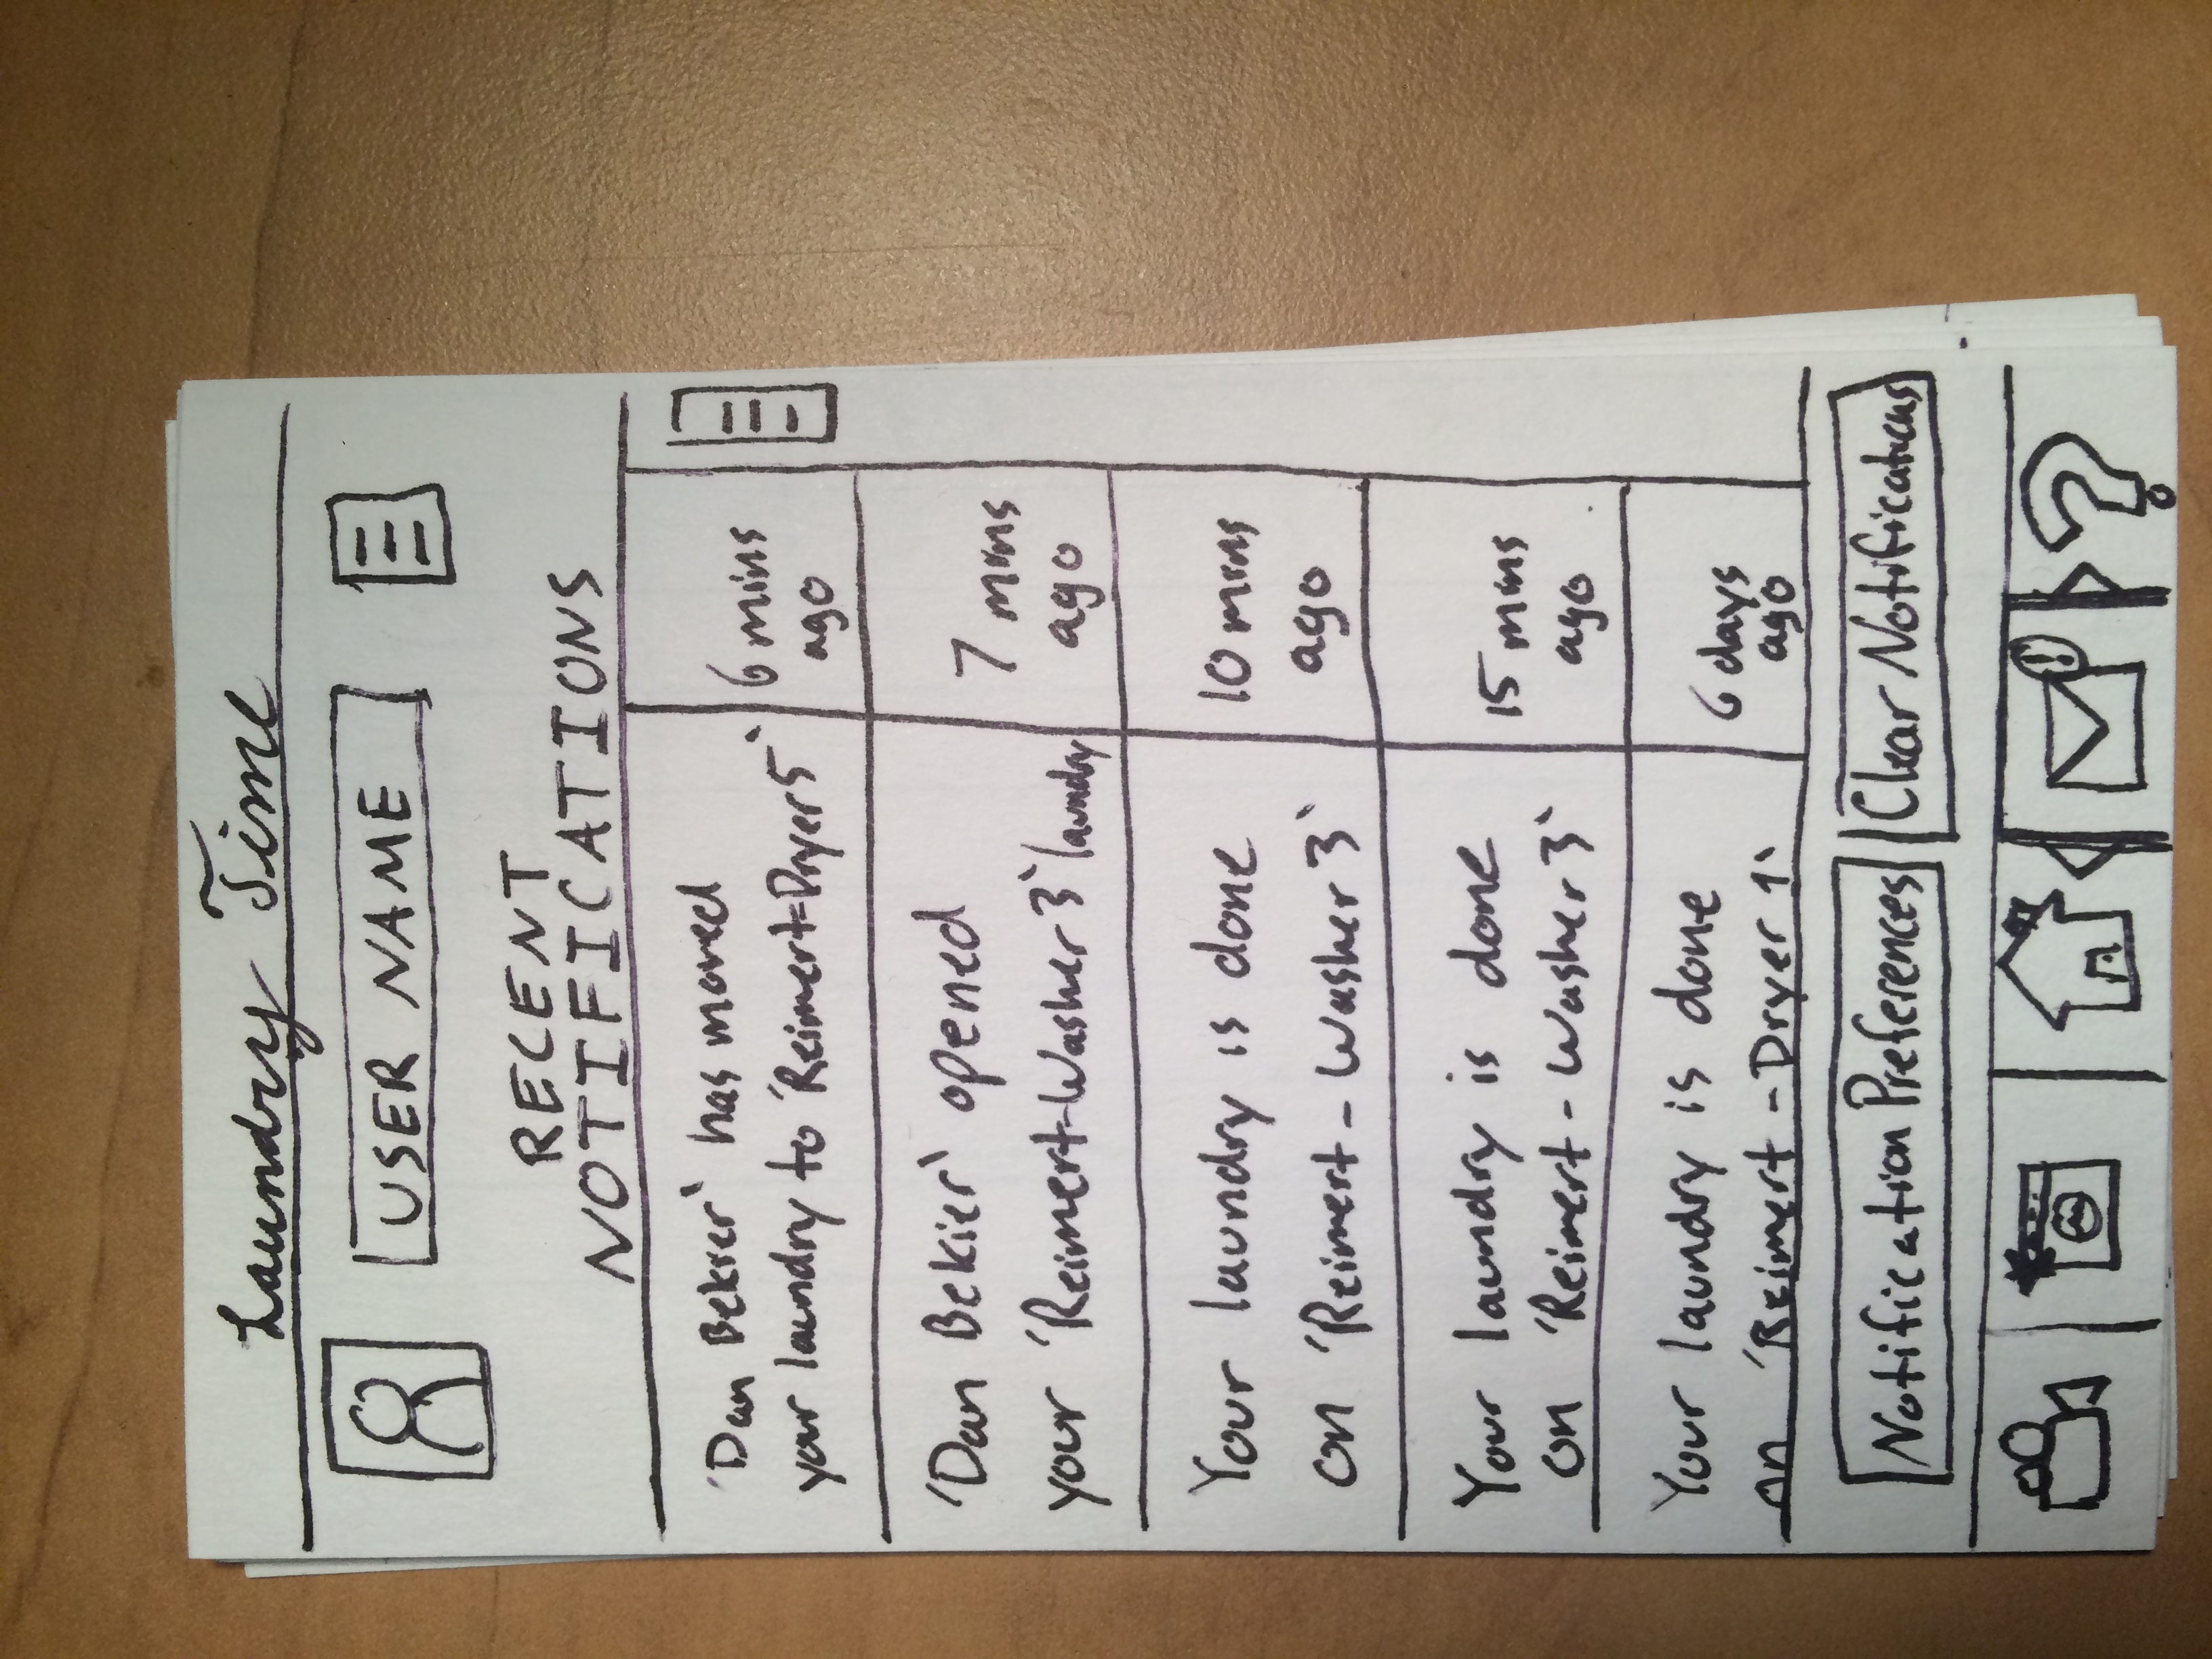 Laundry Time
USER NAME
RECENT
NOTIFICATIONS
'Dan Bekier` has moved
your laundry to 'Reimert=Dryer 5`
6 mins
ago
'Dan Bekier` opened
your 'Reimert-Washer 3` laundry
7 mins
ago
Your laundry is done
on 'Reimert - Washer 3`
10 mins
ago
Your laundry is done
on 'Reimert - Washer 3`
15 mins
ago
Your laundry is done
on 'Reimert - Dryer 1`
6 days
ago
Notification Preferences
Clear Notifications
!
?